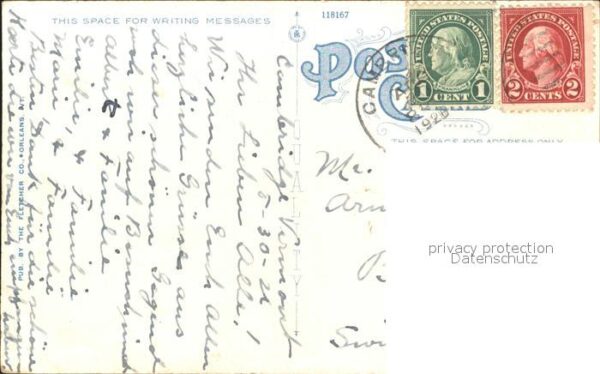 THIS SPACE FOR WRITING MESSAGES
118167
Post
CAMBR
1926
UNITED STATES POSTAGE
1 CENT 1
UNITED STATES POSTAGE
2 CENTS 2
THIS SPACE FOR ADDRESS ONLY
PUB. BY THE FLETCHER CO., ORLEANS, VT.
Cambridge Vermont
8-30-26
Ihr Lieben Alle!
Wir senden Euch allen
herzliche Grüsse aus
dieser schönen Gegend
wo wir auf Besuch sind
Albert & Familie
Emilie, & Familie
Marie & Familie
Besten Dank für die schöne
von Euch
Mr.
Arn
B
Swi
privacy protection
Datenschutz